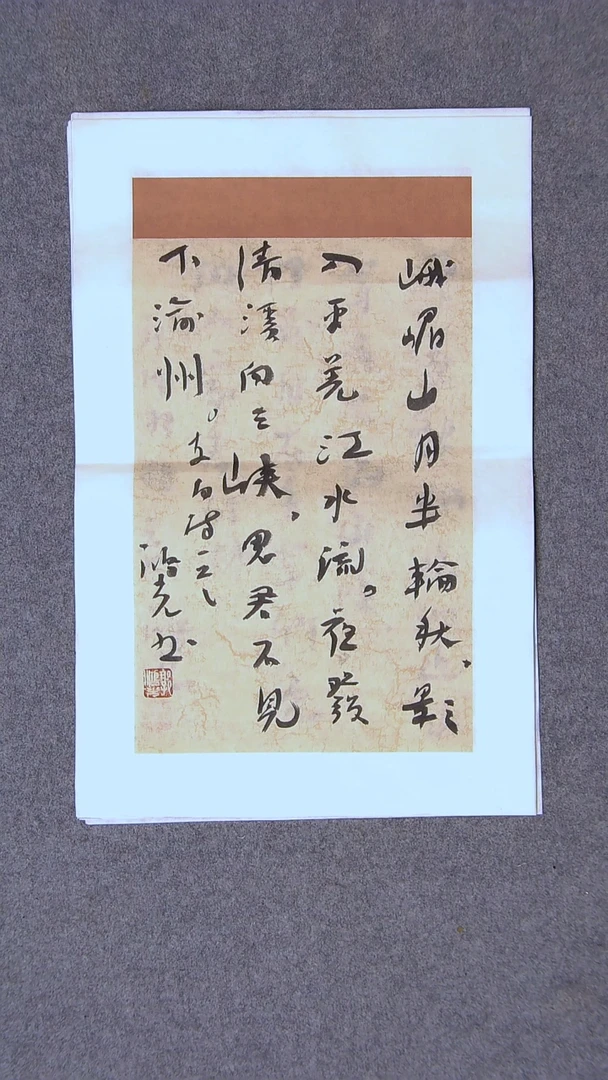 峨嵋山月半輪秋，影
入平羌江水流。夜發
清溪向三峽，思君不見
下渝州。
白诗
书